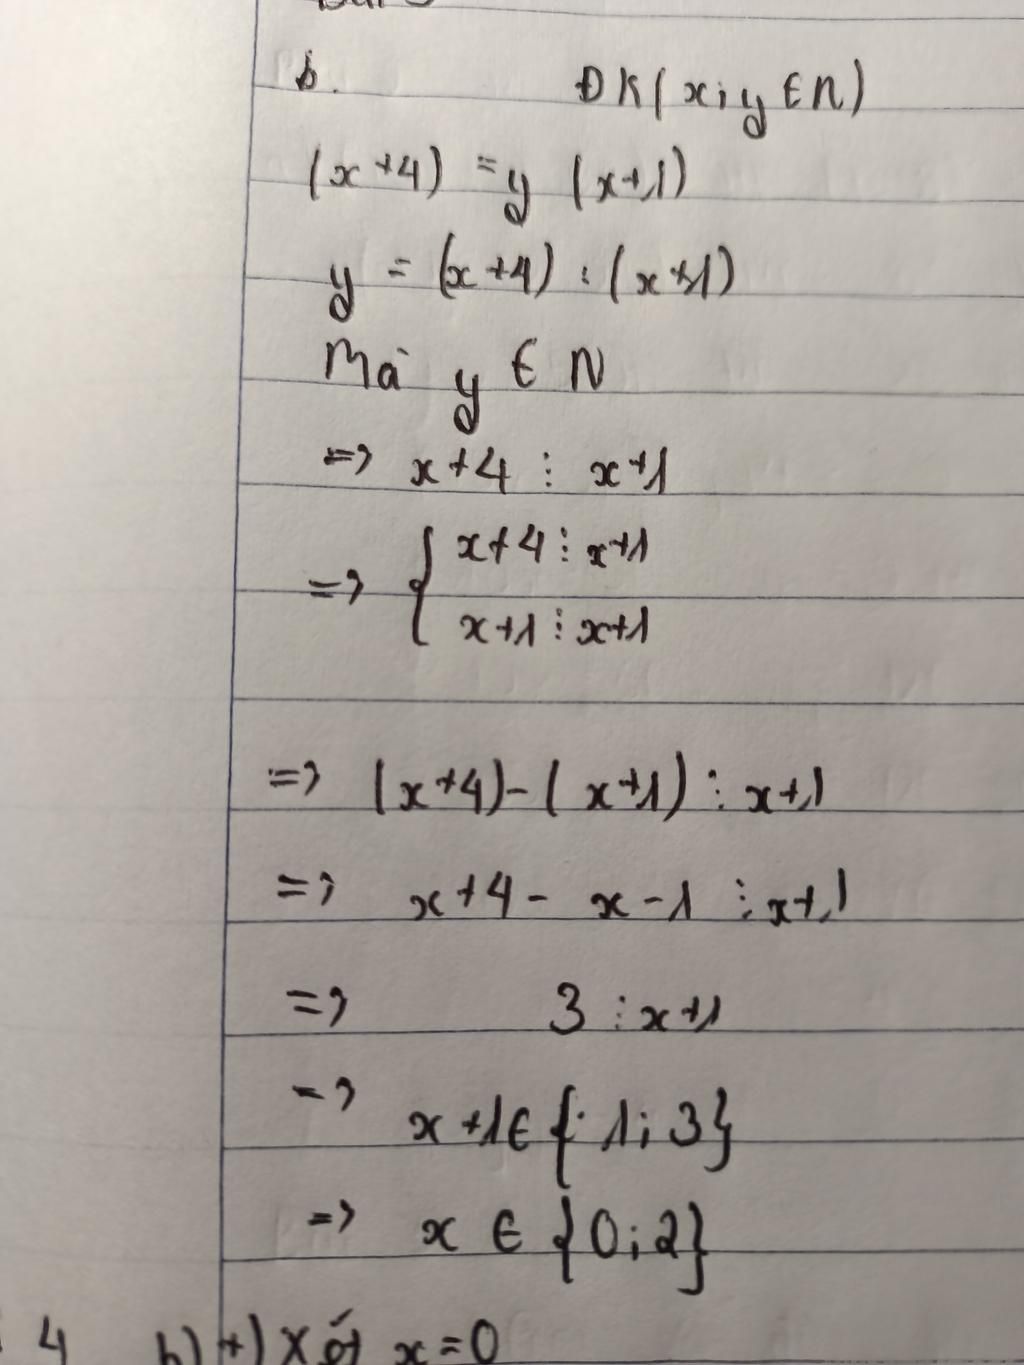 b. ĐK(x;y ∈ N)
(x+4) = y (x+1)
y = (x+4) : (x+1)
Mà y ∈ N
=> x+4 ⋮ x+1
=> { x+4 ⋮ x+1
x+1 ⋮ x+1
=> (x+4)-(x+1) ⋮ x+1
=> x+4- x-1 ⋮ x+1
=> 3 ⋮ x+1
=> x+1 ∈ {1;3}
=> x ∈ {0;2}
4 b) +) Xét x=0